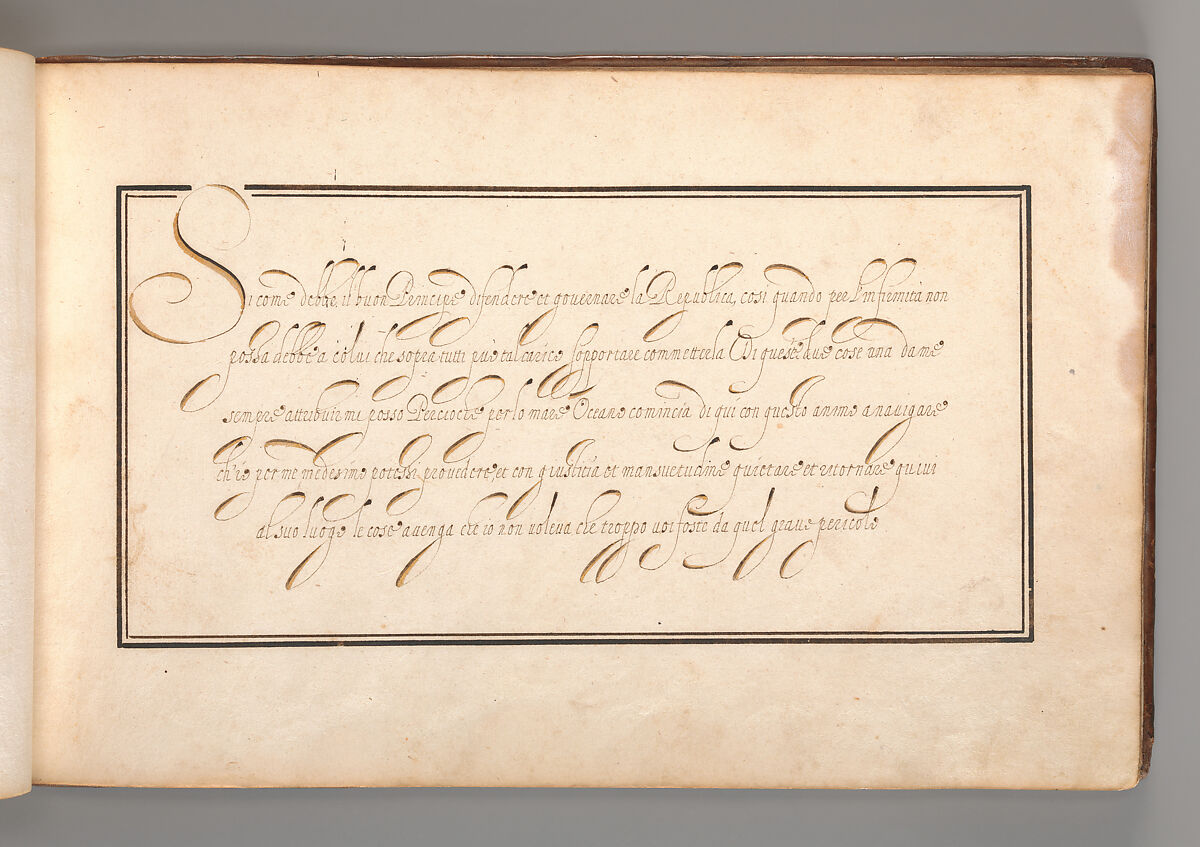 Si come debbe, il buon Principe difendere et governare la Republica, cosi quando per l'infirmità non
possa debbe a colui che sopra tutti può tal carico sopportare commetterla Di queste due cose una da me
sempre attribuirmi posso Perciocche per lo mare Oceano comincia di qui con questo animo a navigare
ch'io per me medesimo potessi provedere, et con giustitia et mansuetudine quietare et ritornare quivi
al suo luogo le cose avenga che io non voleva che troppo voi foste da quel grave pericolo